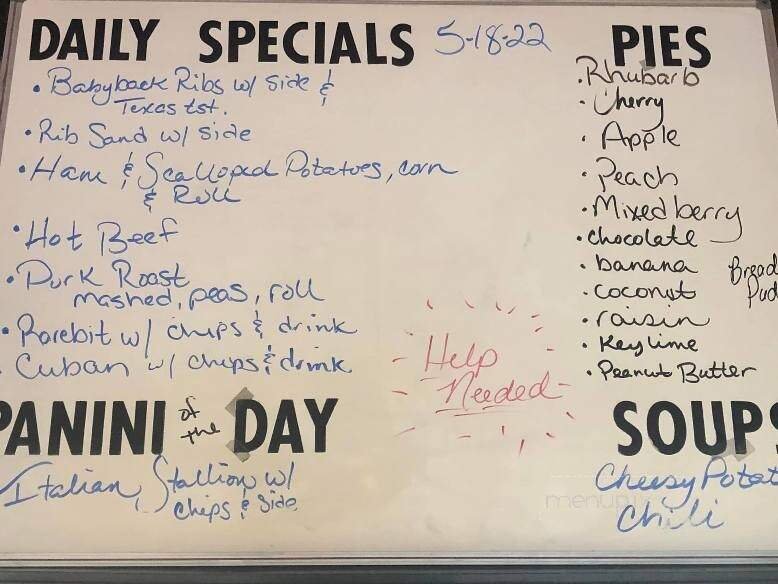 DAILY SPECIALS 5-18-22
• Babyback Ribs w/ Side &
Texas tst.
• Rib Sand w/ side
• Ham & Scalloped Potatoes, corn
& Roll
• Hot Beef
• Pork Roast
mashed, peas, roll
• Rarebit w/ chips & drink
Cuban w/ chips & drink
Help
Needed
PANINI of the DAY
Italian Stallion w/
Chips & Side
PIES
• Rhubarb
• Cherry
• Apple
• Peach
• Mixed berry
• chocolate
• banana
• coconut
• raisin
• Key lime
• Peanut Butter
Bread
Pud
SOUPS
Cheesy Potat
Chili